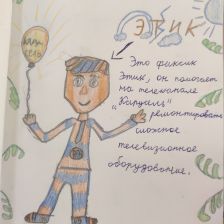 ЭТИК
КАРУ
СЕЛЬ
Это фиксик
Этик, он помогает
на телеканале
"Карусель"
ремонтировать
сложное
телевизионное
оборудование.